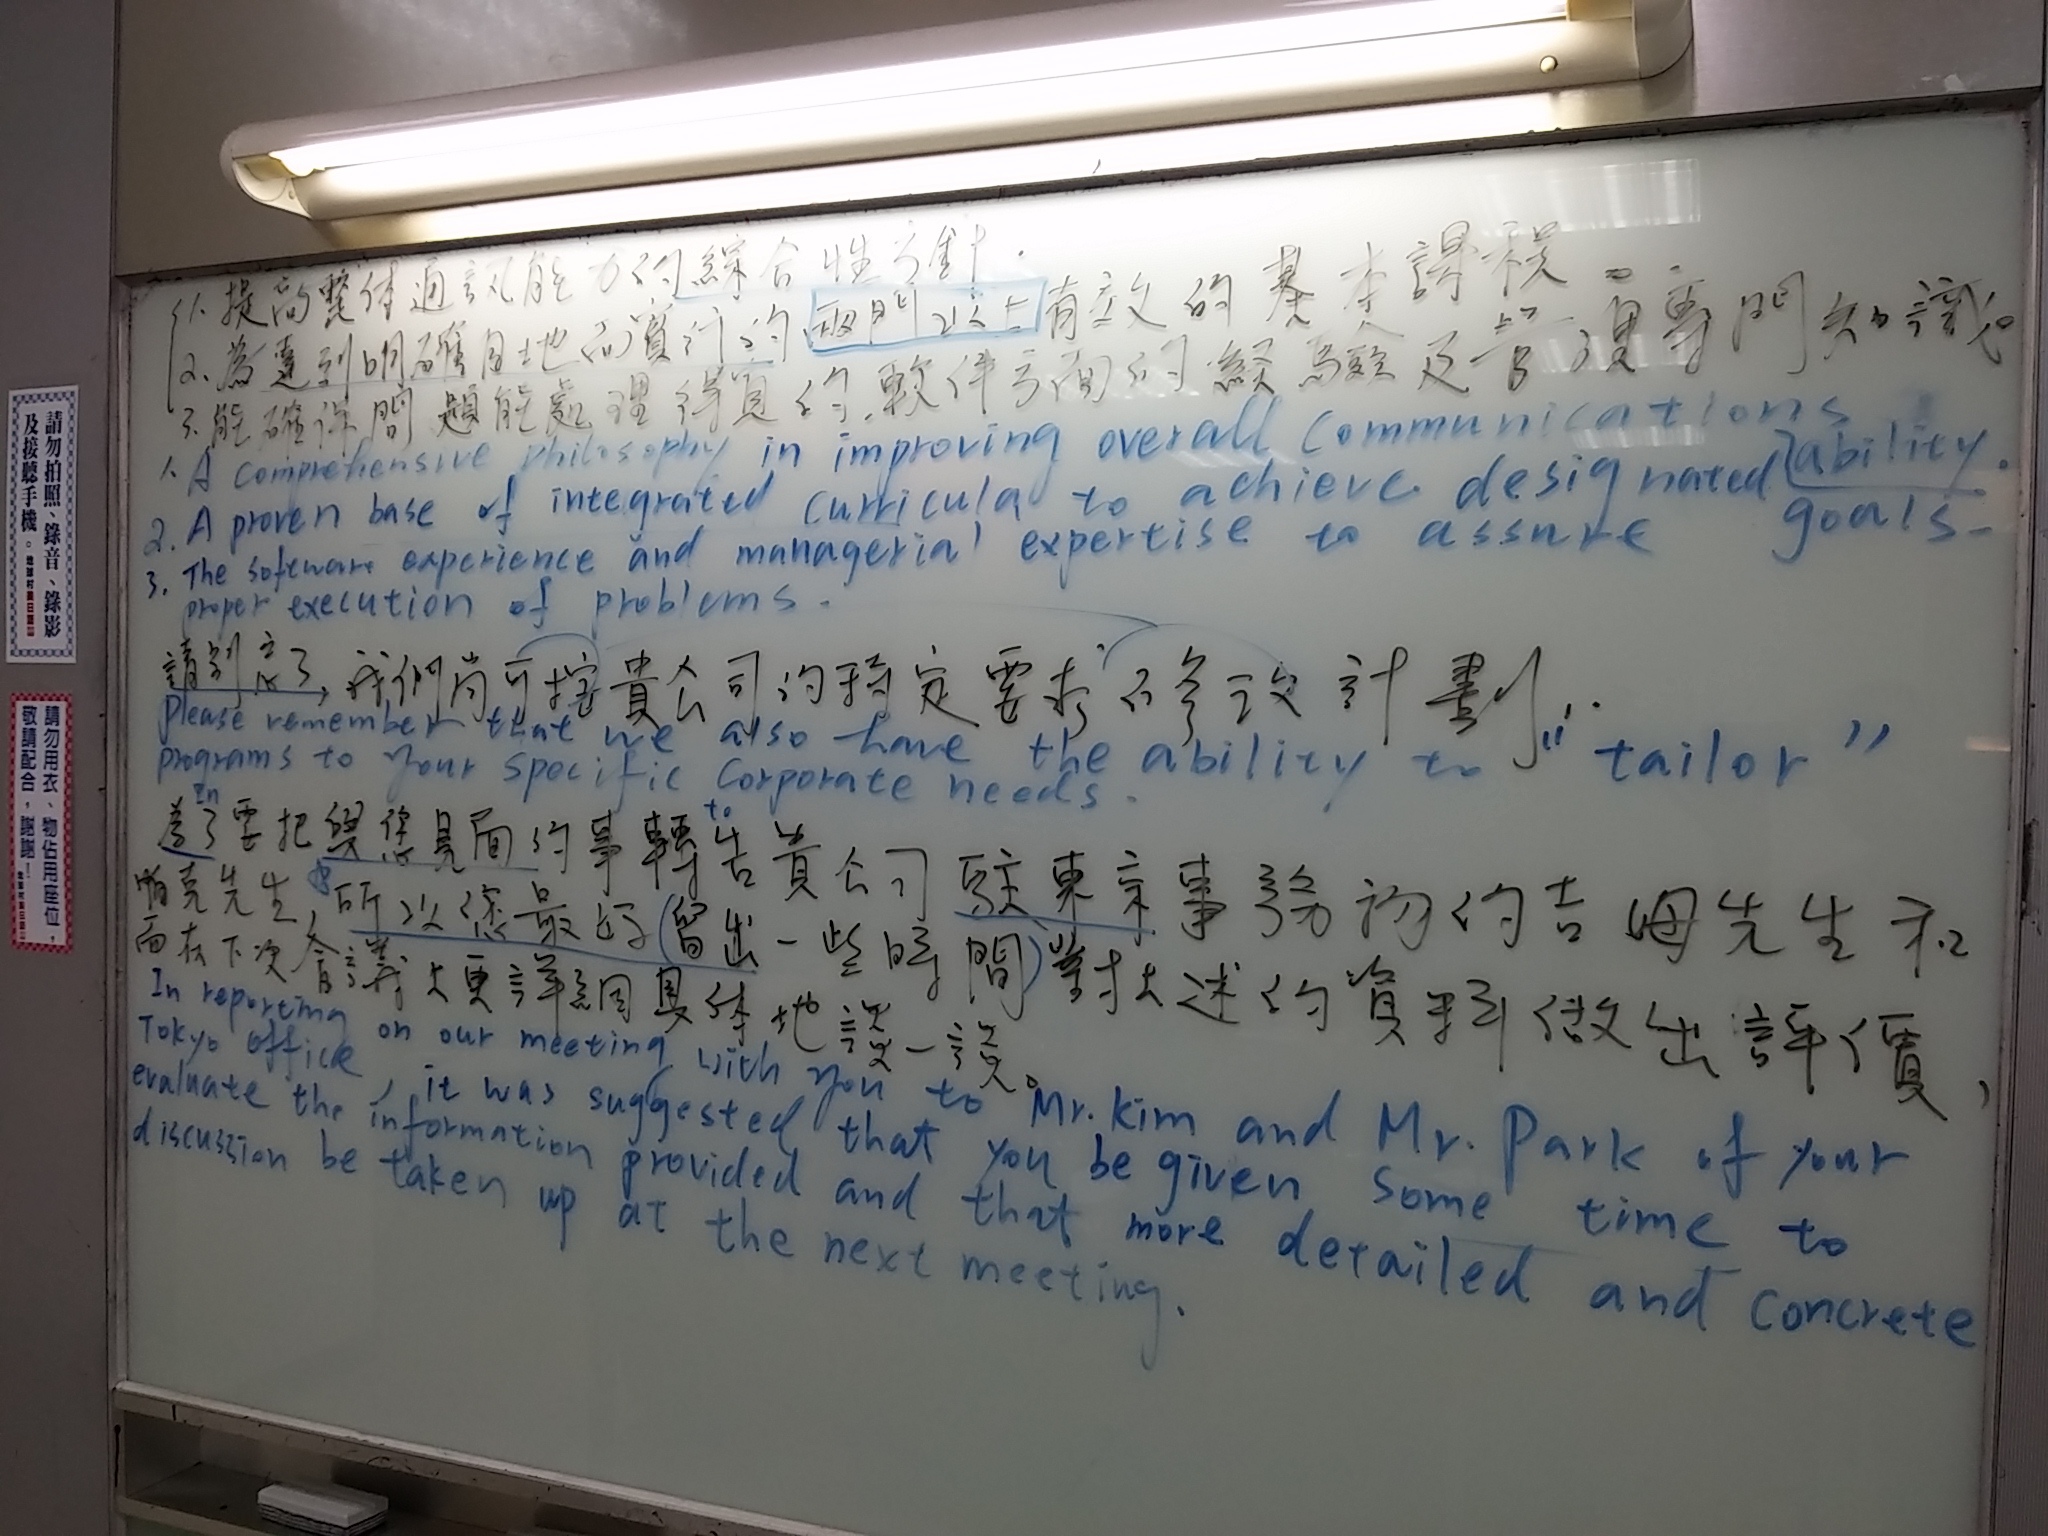 1. 提高整体通訊能力的綜合性方針.
2. 為達到明確目地而實行的兩門以上有效的基本課程.
3. 能確保問題能處理得宜的軟件方面的經驗及管理專門知識.
1. A comprehensive philosophy in improving overall communications ability.
2. A proven base of integrated curricula to achieve designated goals.
3. The software experience and managerial expertise to assure
proper execution of problems.
請別忘了, 我們尚可按貴公司的特定要求而修改計劃...
Please remember that we also have the ability to "tailor"
programs to your specific corporate needs.
In to
為了要把與您見面的事轉告貴公司駐東京事務物的吉姆先生和
帕克先生, 所以您最好(留出一些時間)對上述的資料做出評價,
而在下次會議上更詳細具体地談一談。
In reporting on our meeting with you to Mr. Kim and Mr. Park of your
Tokyo office, it was suggested that you be given some time to
evaluate the information provided and that more detailed and concrete
discussion be taken up at the next meeting.
請勿拍照、錄音、錄影
及接聽手機。
請勿用衣、物佔用座位,
敬請配合,謝謝!